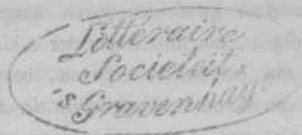 Litteraire
Societeit
's Gravenhage